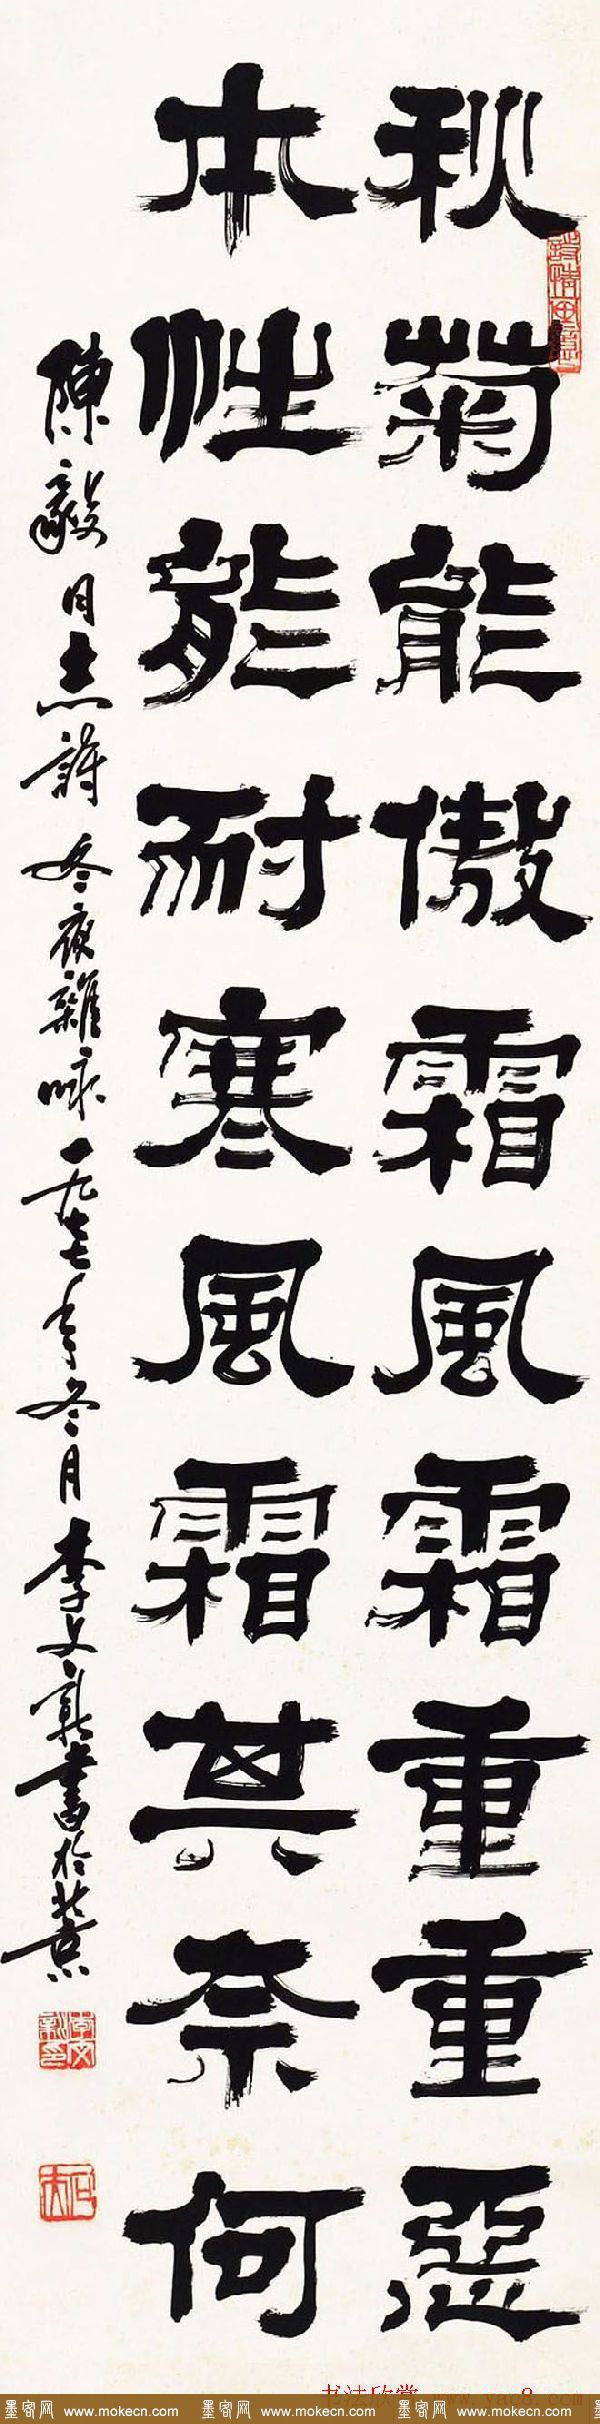 秋菊能傲霜風霜重重惡
本性能耐寒風霜其奈何
陳毅同志詩冬夜雜咏一九七七年冬月李文新書於北京
李文新印
书法欣赏 www.yac8.com
墨客网 www.mokecn.com 墨客网 www.mokecn.com 墨客网 www.mokecn.com